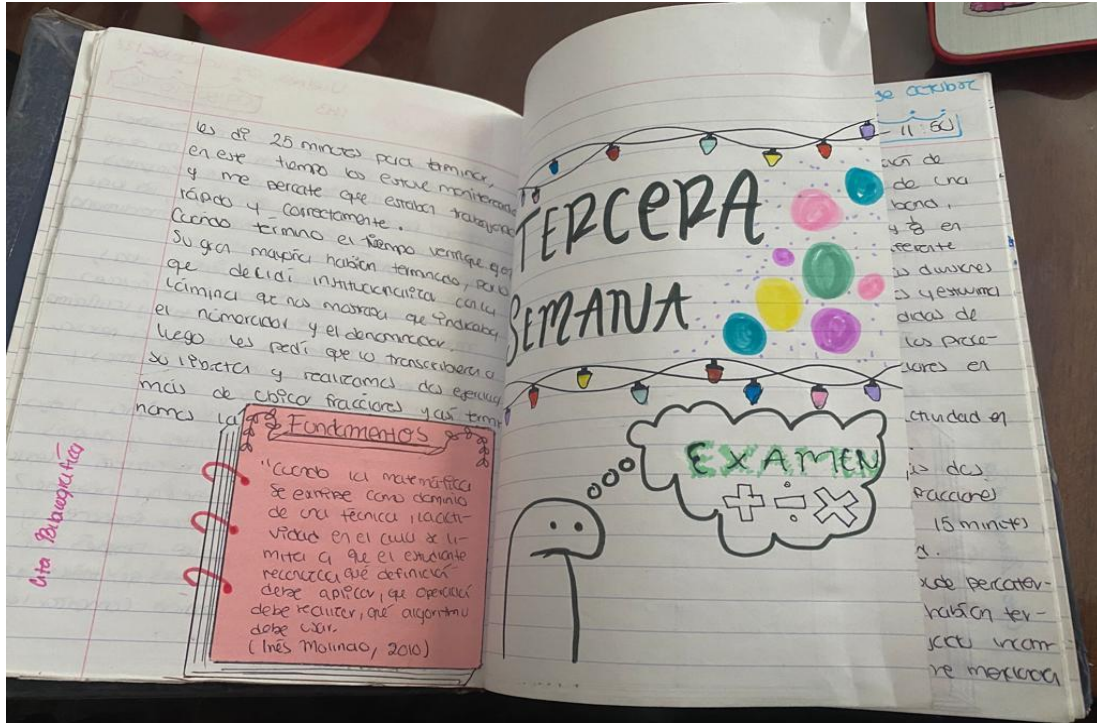 les di 25 minutos para terminar,
en este tiempo los estuve monitoreando
y me percate que estaban trabajando
rápido y correctamente.
Cuando termino el tiempo verifique que
su gran mayoría habían terminado, por lo
que decidí institucionalizar con la
lámina que nos mostraba que indicaba
el numerador y el denominador.
luego les pedí que lo transcribieran a
su libreta y realizamos dos ejercicios
más de ubicar fracciones y así termi
namos la
Fundamentos
"Cuando la matemática
se exhibe como dominio
de una técnica, la acti-
vidad en el aula se li-
mita a que el estudiante
reconozca qué definición
debe aplicar, que operación
debe realizar, qué algoritmo
debe usar.
(Inés Molinao, 2010)
TERCERA
SEMANA
EXAMEN
+ ÷ ×
de octubre
- 11:50
de
de una
en
ferente
y estuima
didas de
los proce-
ciones en
ctividad en
dos
fracciones
15 minutos
percatar-
habían ter-